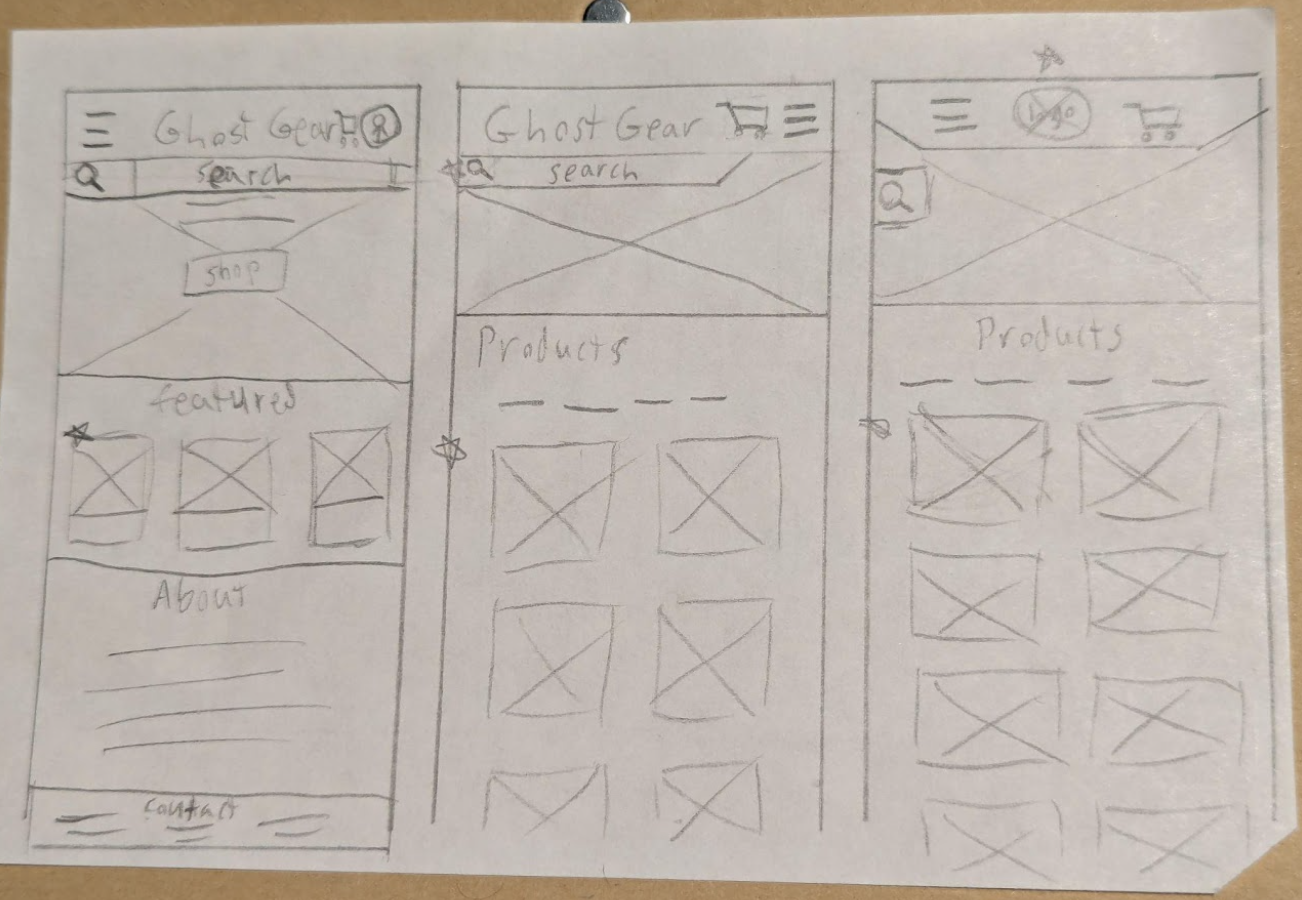 Ghost Gear
search
shop
featured
About
contact
Ghost Gear
search
Products
Logo
Products